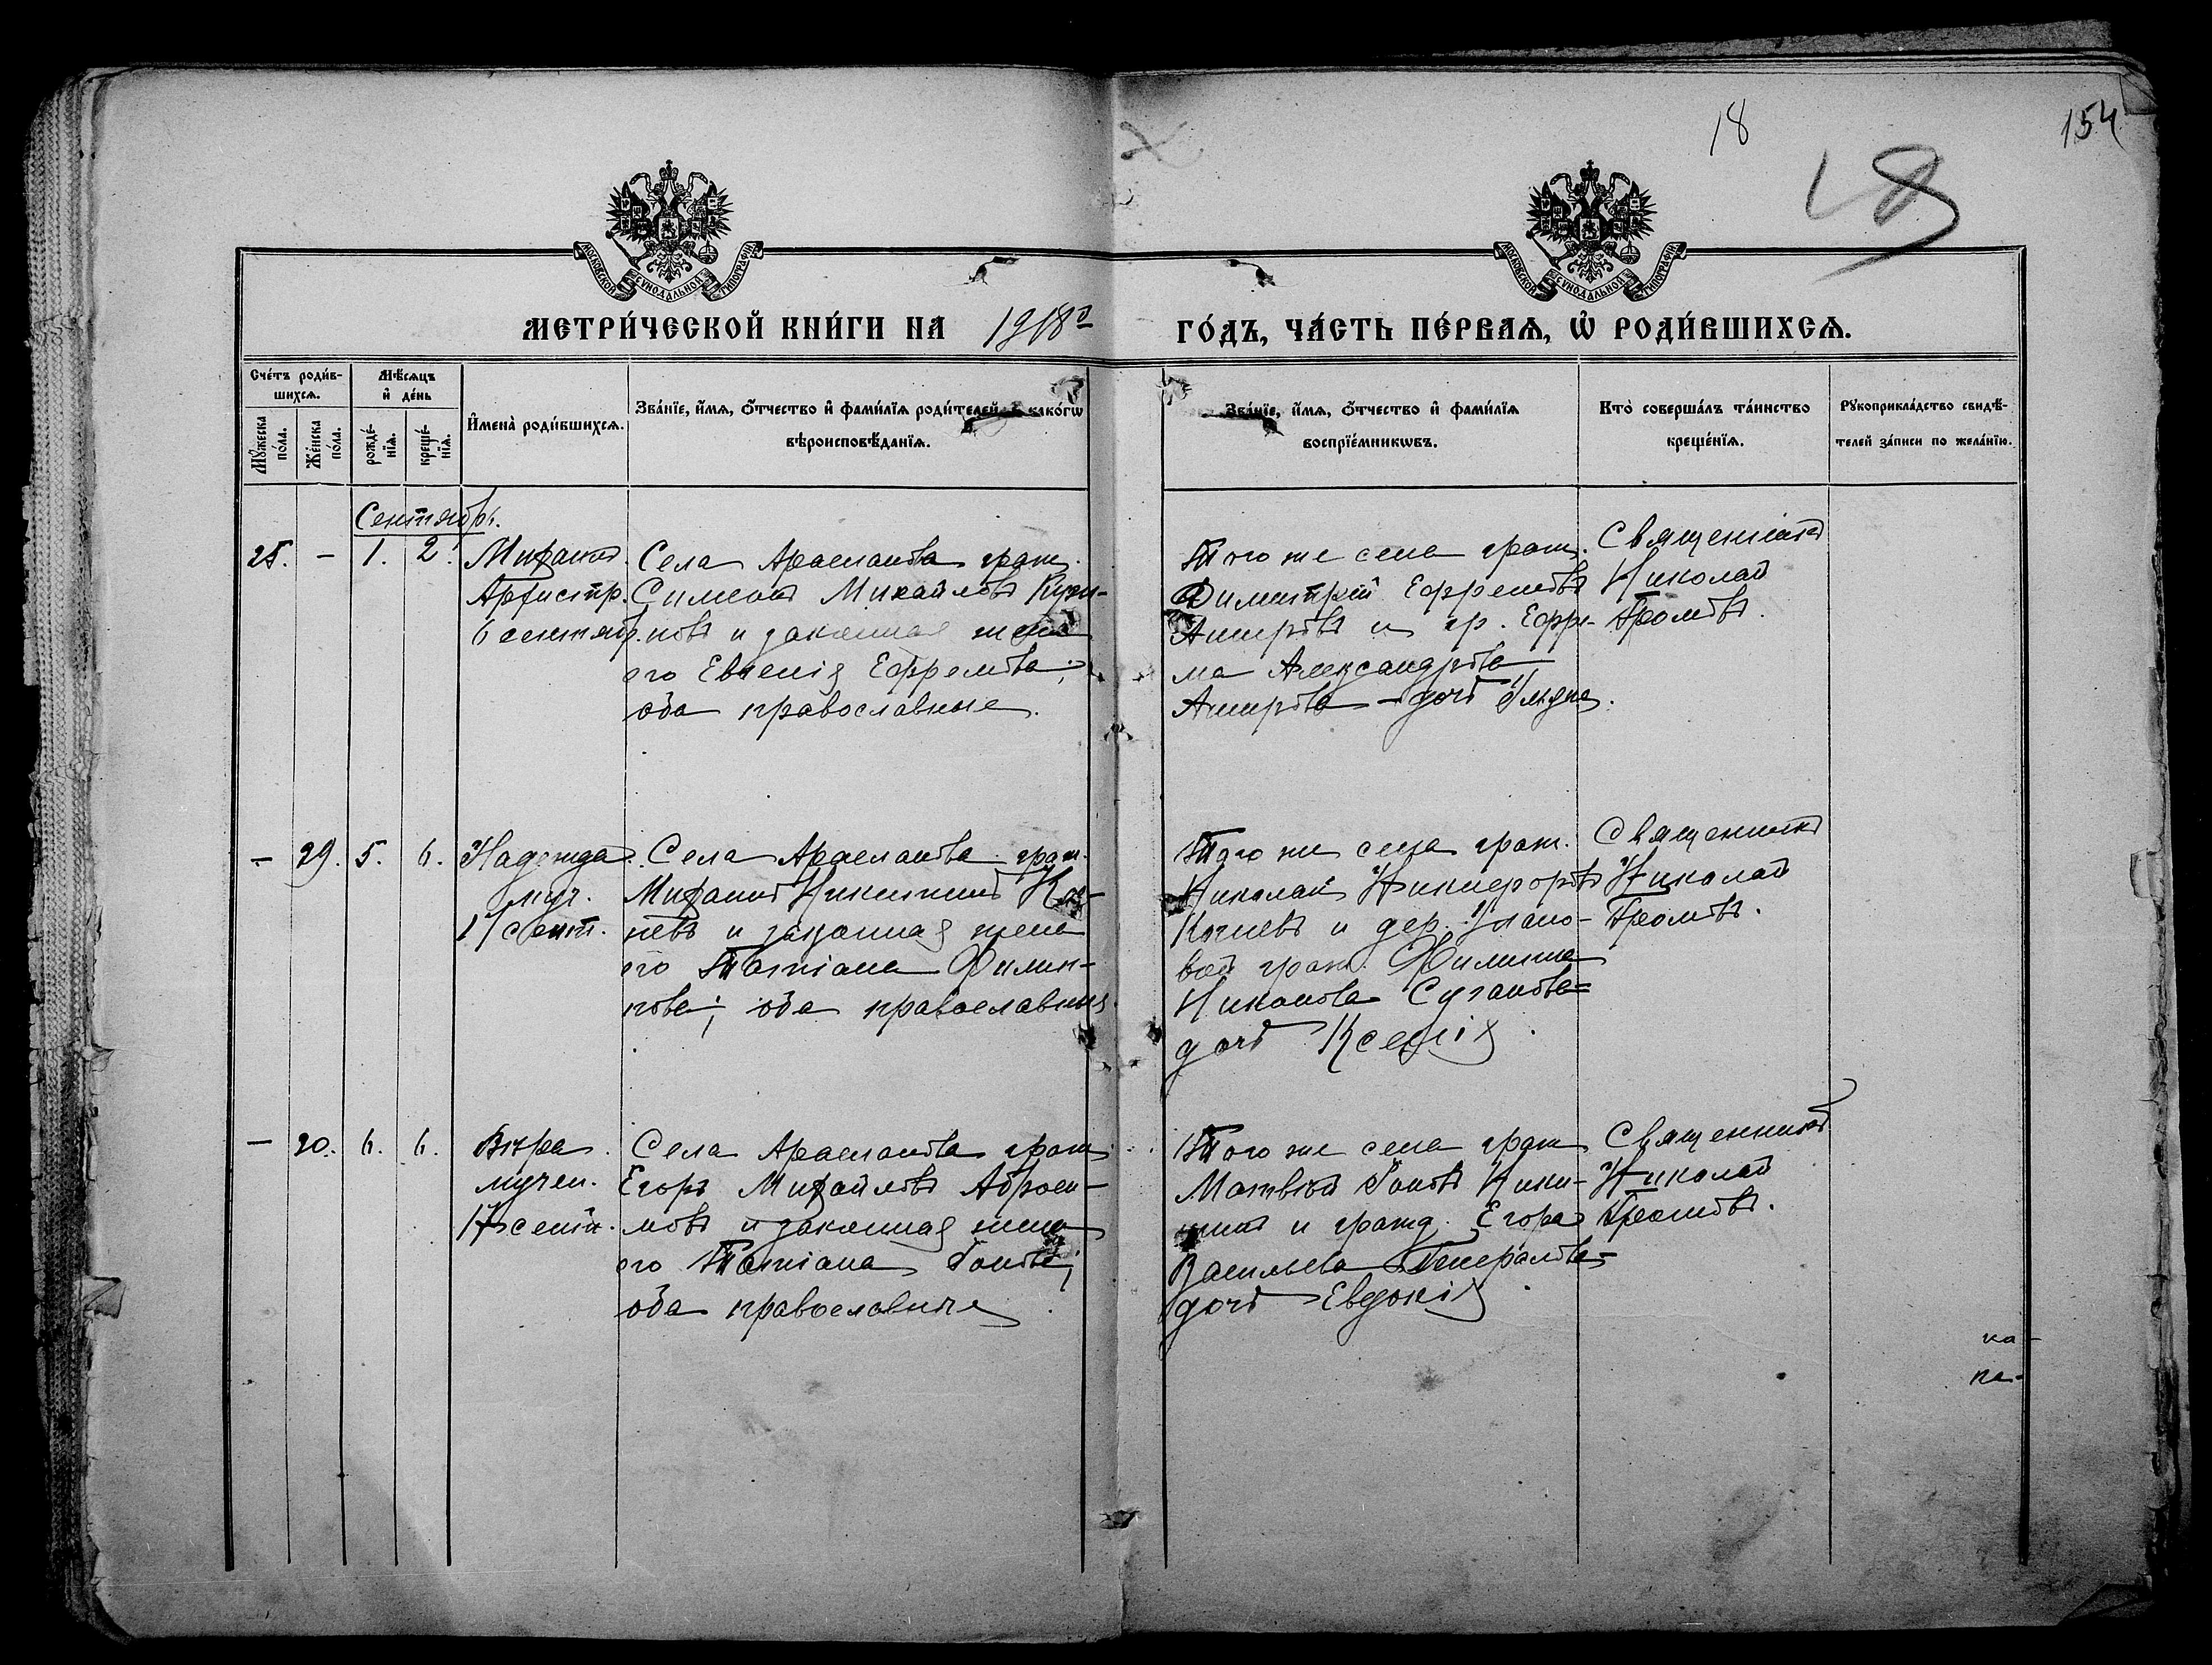 18
154
18
МОСКОВСКОЙ СѴНОДАЛЬНОЙ ТИПОГРАФІИ
МОСКОВСКОЙ СѴНОДАЛЬНОЙ ТИПОГРАФІИ
МЕТРИ́ЧЕСКОЙ КНИ́ГИ НА 1918й ГО́ДЪ, ЧА́СТЬ ПЕ́РВАѦ, Ѡ҆ РОДИ́ВШИХСѦ.
Сче́тъ роди́в-
шихсѧ.
Мꙋ́жеска по́ла.
Же́нска по́ла.
Мѣ́сѧцъ
и҆ де́нь
рожде́-
нїѧ.
креще́-
нїѧ.
И҆мена̀ роди́вшихсѧ.
Зва́нїе, и҆́мѧ, ѻ҆́тчество и҆ фами́лїѧ роди́телей, и҆ како́гѡ
вѣроисповѣ́данїѧ.
Зва́нїе, и҆́мѧ, ѻ҆́тчество и҆ фами́лїѧ
воспрїе́мникѡвъ.
Кто̀ соверша́лъ та́инство
креще́нїѧ.
Рꙋкоприкла́дство свидѣ́-
телей за́писи по жела́нїю.
Сентябрь.
25. – 1. 2. Михаилъ.
Архистр.
6 сентяб.
Села Арасланова граж.
Симеонъ Михайловъ Кузи-
новъ и законная жена
его Евгенія Ефремова;
оба православные.
Того же села граж.
Димитрій Ефремовъ
Ашировъ и гр. Ефре-
ма Александрова
Аширова – дочь
Священникъ
Николай
Громовъ.
– 29. 5. 6. Надежда.
муч.
17 сент.
Села Арасланова граж.
Михаилъ Никитинъ
и законная жена
его Татіана Филип-
пова; оба православные.
Того же села граж.
Николай Никифоровъ
и дер.
вой граж. Филиппа
Никонова
дочь Ксенія.
Священникъ
Николай
Громовъ.
– 20. 6. 6. Вѣра.
мучен.
17 сент.
Села Арасланова граж.
Егоръ Михайловъ Аброси-
мовъ и законная жена
его Татіана
оба православные.
Того же села граж.
Матвѣй Ники-
тинъ и гражд. Егора
Васильева Генералова-
дочь Евдокія.
Священникъ
Николай
Громовъ.
ка-